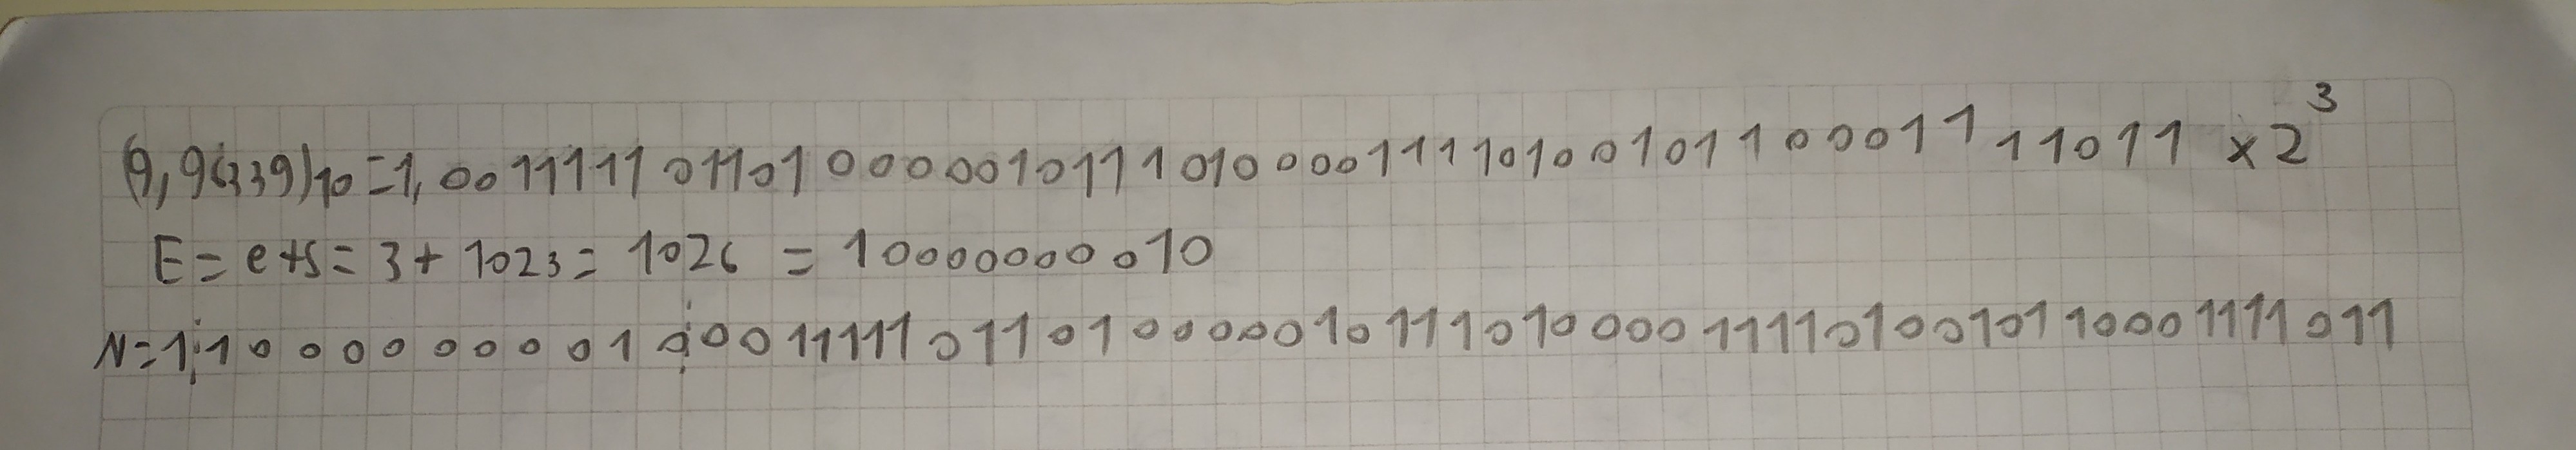 (9,96339)10 = 1,00111110110100000101110100001111010010110001111011 x 2³
E = e+s = 3 + 1023 = 1026 = 10000000010
N = 1 10000000010 00111110110100000101110100001111010010110001111011